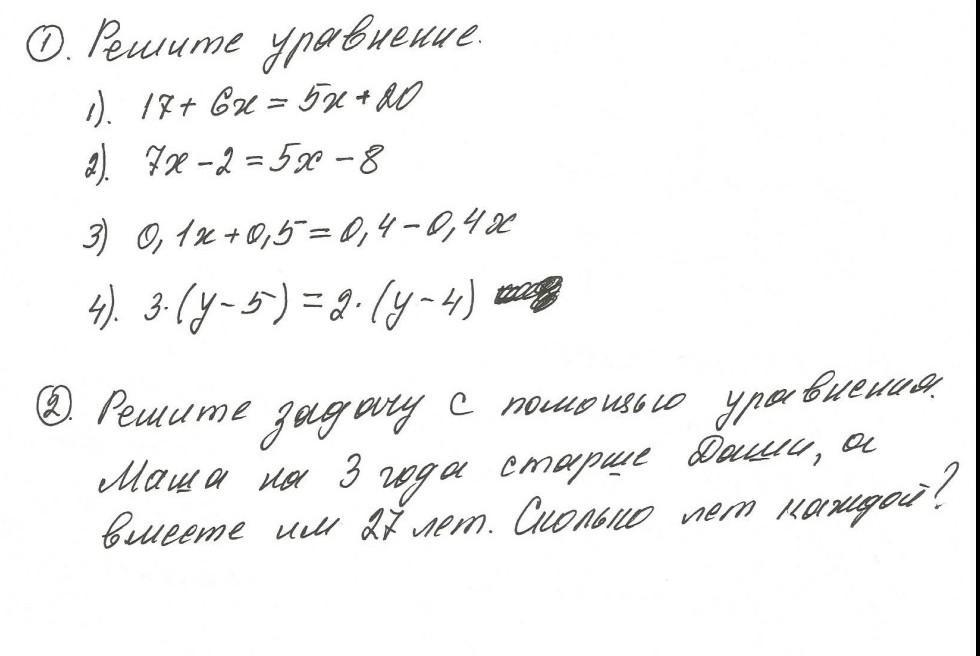 ①. Решите уравнение.
1). 17 + 6x = 5x + 20
2). 7x - 2 = 5x - 8
3) 0,1x + 0,5 = 0,4 - 0,4x
4). 3·(y - 5) = 2·(y - 4)
②. Решите задачу с помощью уравнения.
Маша на 3 года старше Даши, а
вместе им 27 лет. Сколько лет каждой?